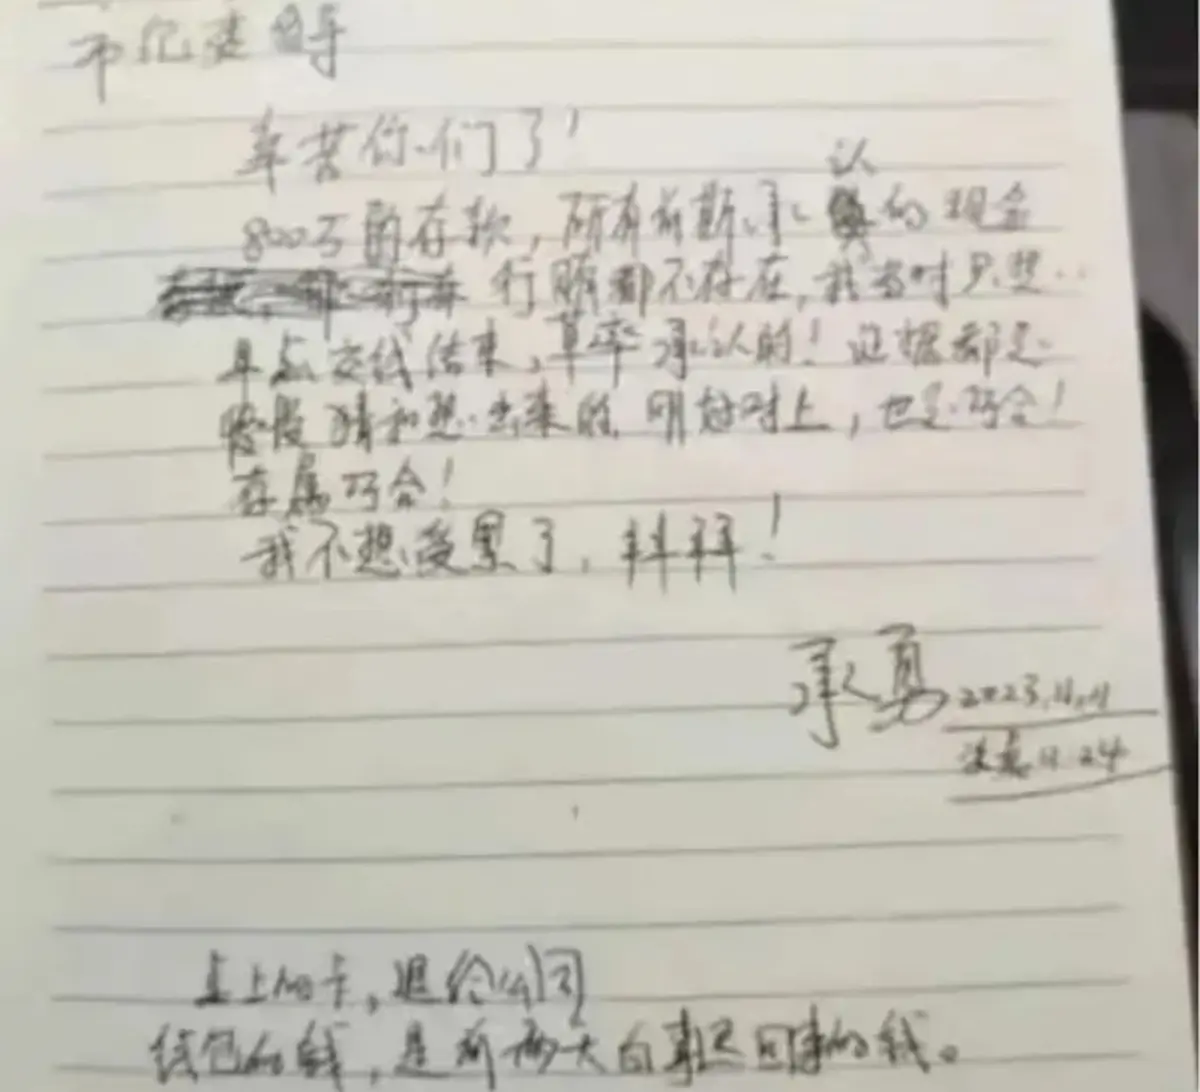 市纪委领导
辛苦你们了！
800万的存款，所有前期承认的现金
行贿都不存在，我当时只想
早点交代结束，草率承认的！证据都是
猜和想出来的，刚好对上，也是巧合！
存属巧合！
我不想受累了，拜拜！
承勇 2023.11.11
凌晨11:24
桌上的卡，退给公司
钱包的钱，是前两天白事退回来的钱。